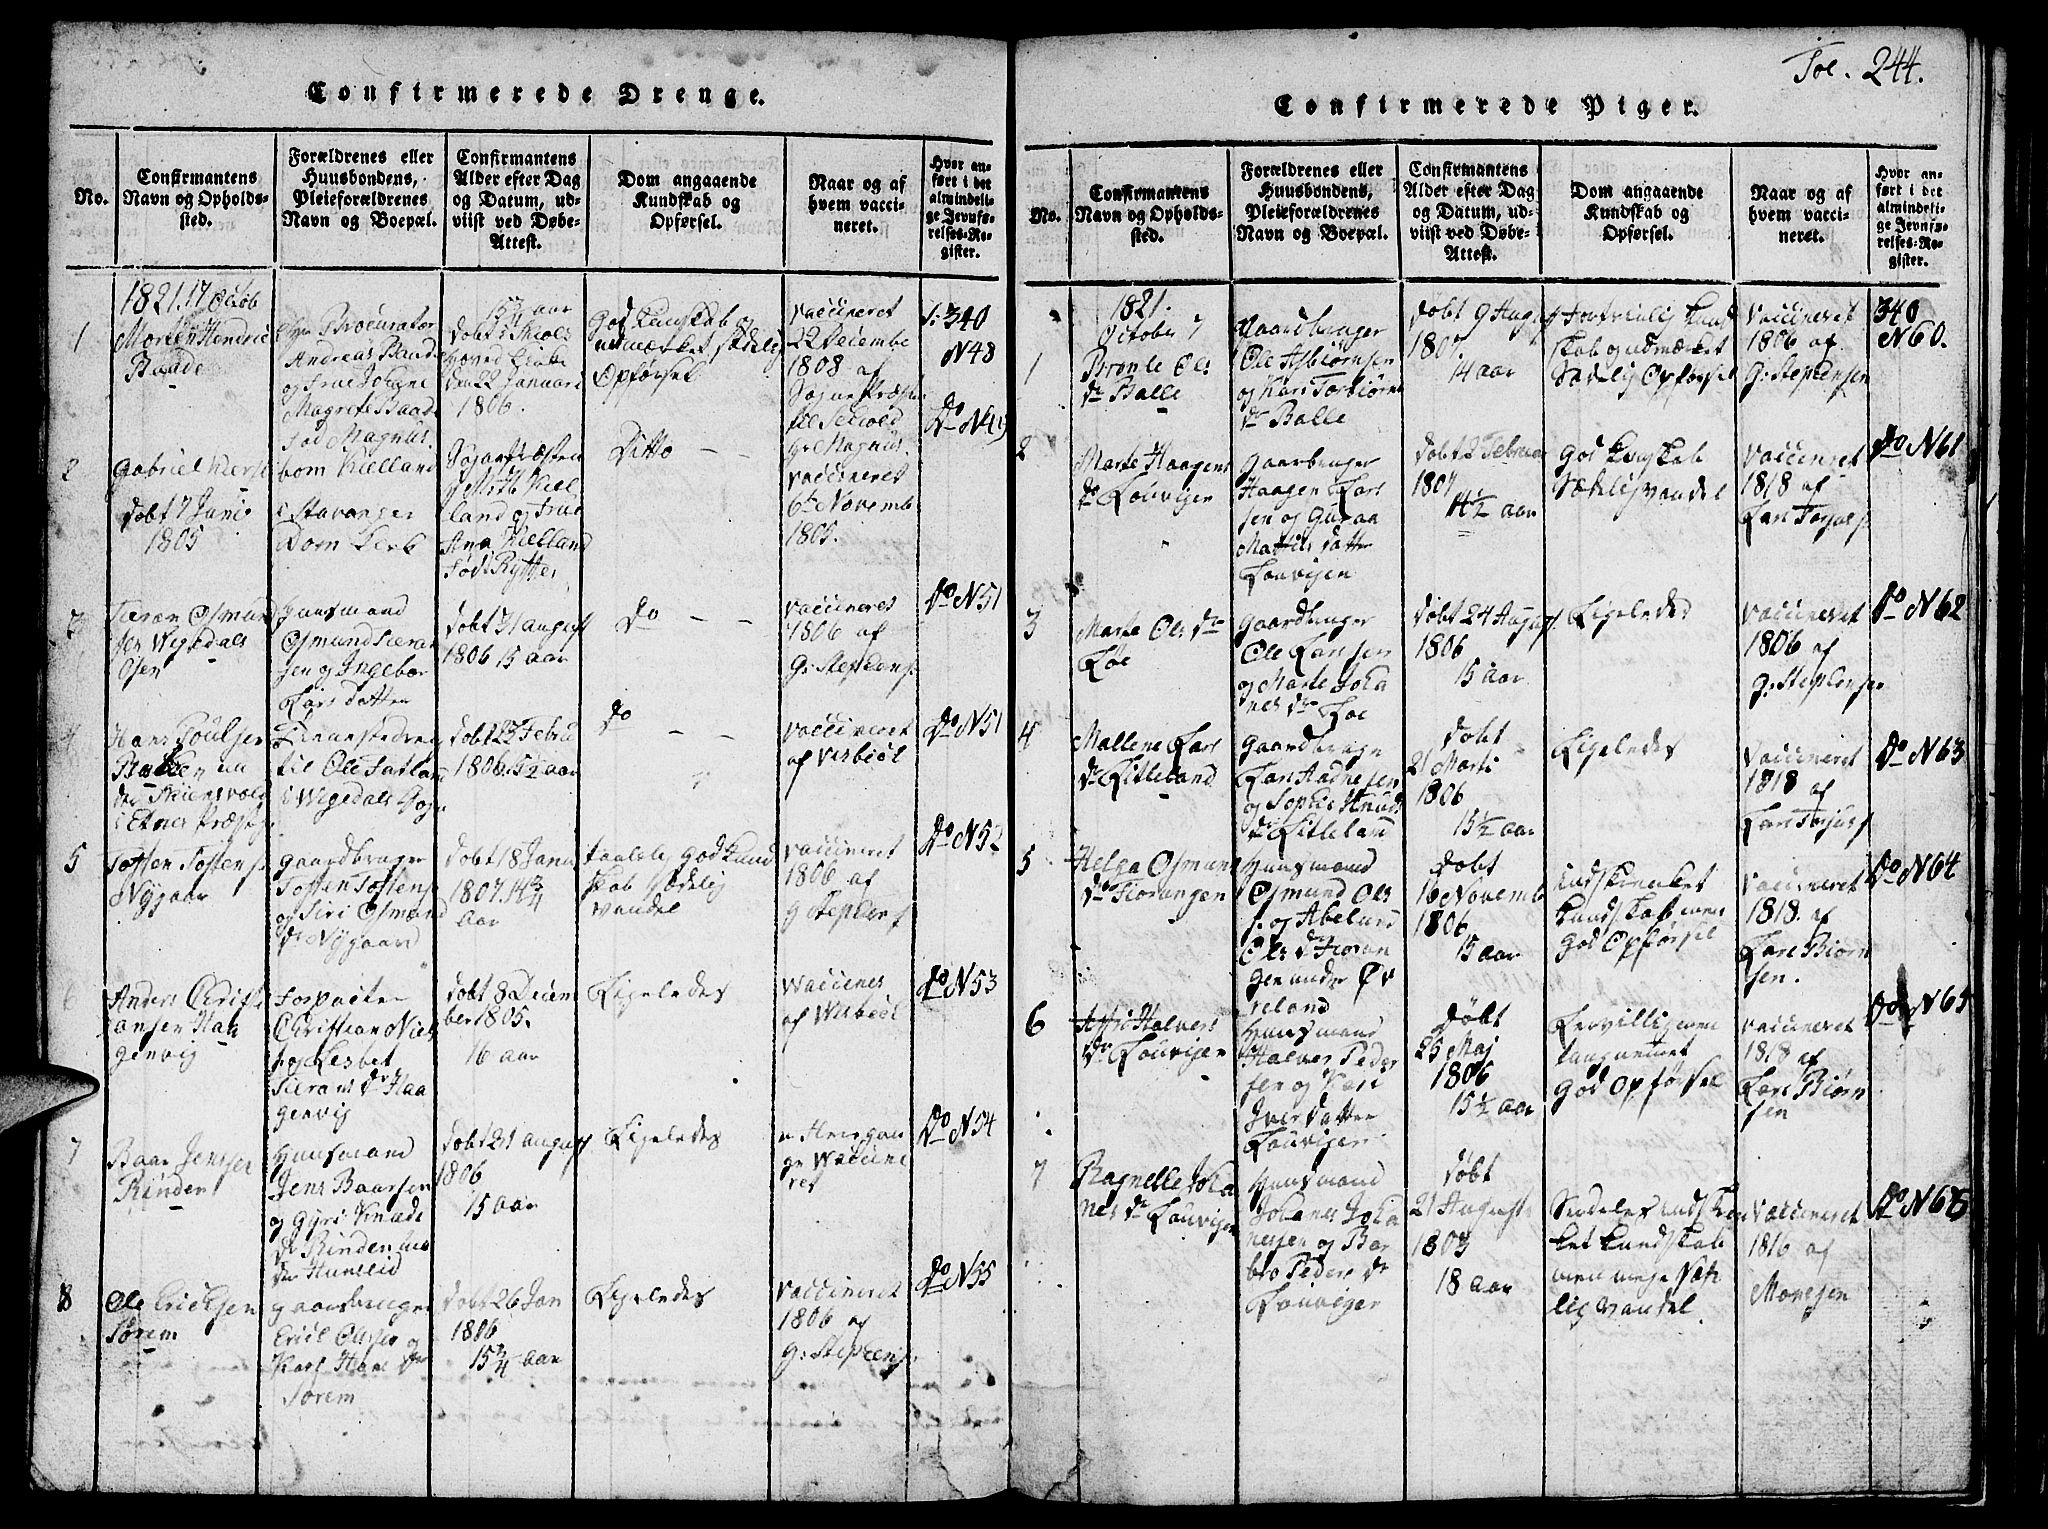 Fol. 244.
Confirmerede Drenge.
No.
Confirmantens
Navn og Opholds-
sted.
Forældrenes eller
Huusbondens,
Pleieforældrenes
Navn og Boepæl.
Confirmantens
Alder efter Dag
og Datum, ud-
viist ved Døbe-
Attest.
Dom angaaende
Kundskab og
Opførsel.
Naar og af
hvem vacci-
neret.
Hvor an-
ført i det
almindeli-
ge Jevnfø-
relses-Re-
gister.
1821. 17 Octob
1
Morten Hendric
Baade
Procurator
Andreas Baade
og Frue Johane
Magrete Baade
Fød Magnus.
15 3/4 aar
den 22 Januari
1806.
God Kunskab og
udmærket sædelig
Opførsel
vaccineret
22 Decembe
1808 af
Sogne Præsten
til Selvold
Hr Magnus.
S: 340
N48
2
Gabriel Kirse
bom Kielland
Døbt 7 Juni
1805
i Stavanger
Dom Kerk
Sogne Præsten
land og Frue
Ana Kielland
Fød Rytter
Ditto
vaccineret
6te Novemb
1805.
Do N49
3
Sieren Osmun
sen Wigedals
Osen
Huusmand
Osmund Siere
sen og Ingebor
Lars datter
Døbt 31 August
1806 15 aar
Do
vaccineret
1806 af
G: Stephens
Do N51
4
Hans Poulsen
Bakken un
der Skiensvold
i Etnes Præstg
til Ole Fatland
i Wigedals Sogn
Døbt 23 Febru
1806. 15 1/2 aar
Do
vaccineret
af Visbiøl
Do N51
5
Tosten Tostens
Nygaar
Gaardbruger
Tosten Tostens
og Siri Osmund
Dr Nygaard
Døbt 18 Janu
1807. 14 3/4
aar
taalelig god Kund
skab sædelig
vandel
vaccineret
1806 af
G Stephens
Do N52
6
Anders Christi
ansen Haa
genvig
Forpagter
Christian Niels
s og Lisbet
Sierens Dr Haa
genvig
Døbt 8 Decem
ber 1805.
16 aar
Ligeledes
vaccines
af Wisbiøl
Do N53
7
Baar Jensen
Rinden
Huusmand
Jens Baarsen
og Gyri Knuds
Dr Rinden un
der Hundeid
Døbt 31 august
1806
15 aar
Ligeledes
vaccine
ret
Do N54
8
Ole Ericksen
Sørem
Gaardbruger
Erick Olsen og
Kari Hans Dr
Sørem
Døbt 26 Jan
1806
15 3/4 aar
Ligeledes
vaccineret
1806 af
G: Stephens
Do N55
Confirmerede Piger.
No.
Confirmantens
Navn og Opholds-
sted.
Forældrenes eller
Huusbondens,
Pleieforældrenes
Navn og Boepæl.
Confirmantens
Alder efter Dag
og Datum, ud-
viist ved Døbe-
Attest.
Dom angaaende
Kundskab og
Opførsel.
Naar og af
hvem vacci-
neret.
Hvor an-
ført i det
almindeli-
ge Jevnfø-
relses-Re-
gister.
1821.
October 7
1
Brønle Ols
Dr Balle
Gaardbruger
Ole Asbiørnsen
og Kari Torbiørns
Dr Balle
Døbt 9 Aug
1807
14 aar
Fortrinlig Kund
skab og udmærket
Sædelig Opførsel
vaccineret
1806 af
G: Stephensen
340
N60.
2
Marte Haagens
Dr Louvigen
Gaarbruger
Haagen Lars
sen og Guroa
Mattis Datter
Louvigen
Døbt 2 Februar
1807
14 1/2 aar
God Kunskab
Sædelig vandel
vaccineret
1818 af
Lars Torjus
Do N61
3
Marte Ols Dr
Løe
Gaardbruger
Ole Larssen
og Marte Joha
nes Dr Løe
Døbt 24 August
1806
15 aar
Ligeledes
vaccineret
1806 af
G: Stephensen
Do N62
4
Mallene Lars
Dr Litleland
Gaardbruger
Lars Aadnesen
og Sophie Knuds
Dr Litleland
Døbt
21 Marts
1806
15 1/2 aar
Ligeledes
vaccineret
1818 af
Lars Torjus
Do N63
5
Helga Osmuns
Dr Fiorangen
Huusmand
Osmund Ols
s. og Abelund
Ols Dr Fioran
gen under Øv
reland
Døbt
16 Novemb
1806
15 aar
Indskrenket
Kundskab men
God Opførsel
vaccineret
1818. af
Lars Biørn
sen.
Do N64
6
Halvers
Dr Louvigen
Huusmand
Halver Peder
sen og Kari
Iver Datter
Louvigen
Døbt
25 Maj
1806
15 1/2 aar
God Opførsel
vaccineret
1818 af
Lars Biørn
sen
Do N65
7
Ragnelle Joha
nes Dr Louvigen
Huusmand
Johanes Joha
nessen og Bar
bro Peders Dr
Louvigen
Døbt
21 August
1803
18 aar
Sædeles indskren
ket Kundskab
men meget sæde
lig vandel.
vaccineret
1816 af
Monsen
Do N66